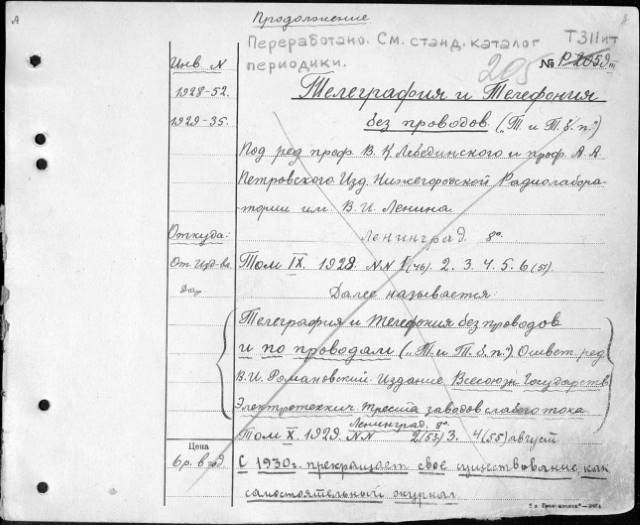 А
Продолжение
Переработано. См. станд. каталог
периодики.
Т311ит
205
№ Р 2059 m
Инв. N
1928-52.
1929-35.
Телеграфия и Телефония
без проводов („Т. и Т. б. п.")
Под ред проф. В. К. Лебединского и проф. А. А.
Петровского Изд. Нижегородской Радиолабора-
тории им. В. И. Ленина.
Откуда:
Ленинград. 8°.
От Изд-ва
Том IX. 1928. NN 1(46). 2. 3. 4. 5. 6 (51)
Дар.
Далее называется:
Телеграфия и Телефония без проводов
и по проводам („Т. и Т. б. п.") Ответ. ред
В. И. Романовский. Издание Всесоюзн. Государств
Электротехнич. треста заводов слабого тока
Ленинград. 8°.
Том X. 1929. NN 2(53) 3. 4(55) август
Цена
6 р. в год.
С 1930 г. прекращает свое существование, как
самостоятельный журнал